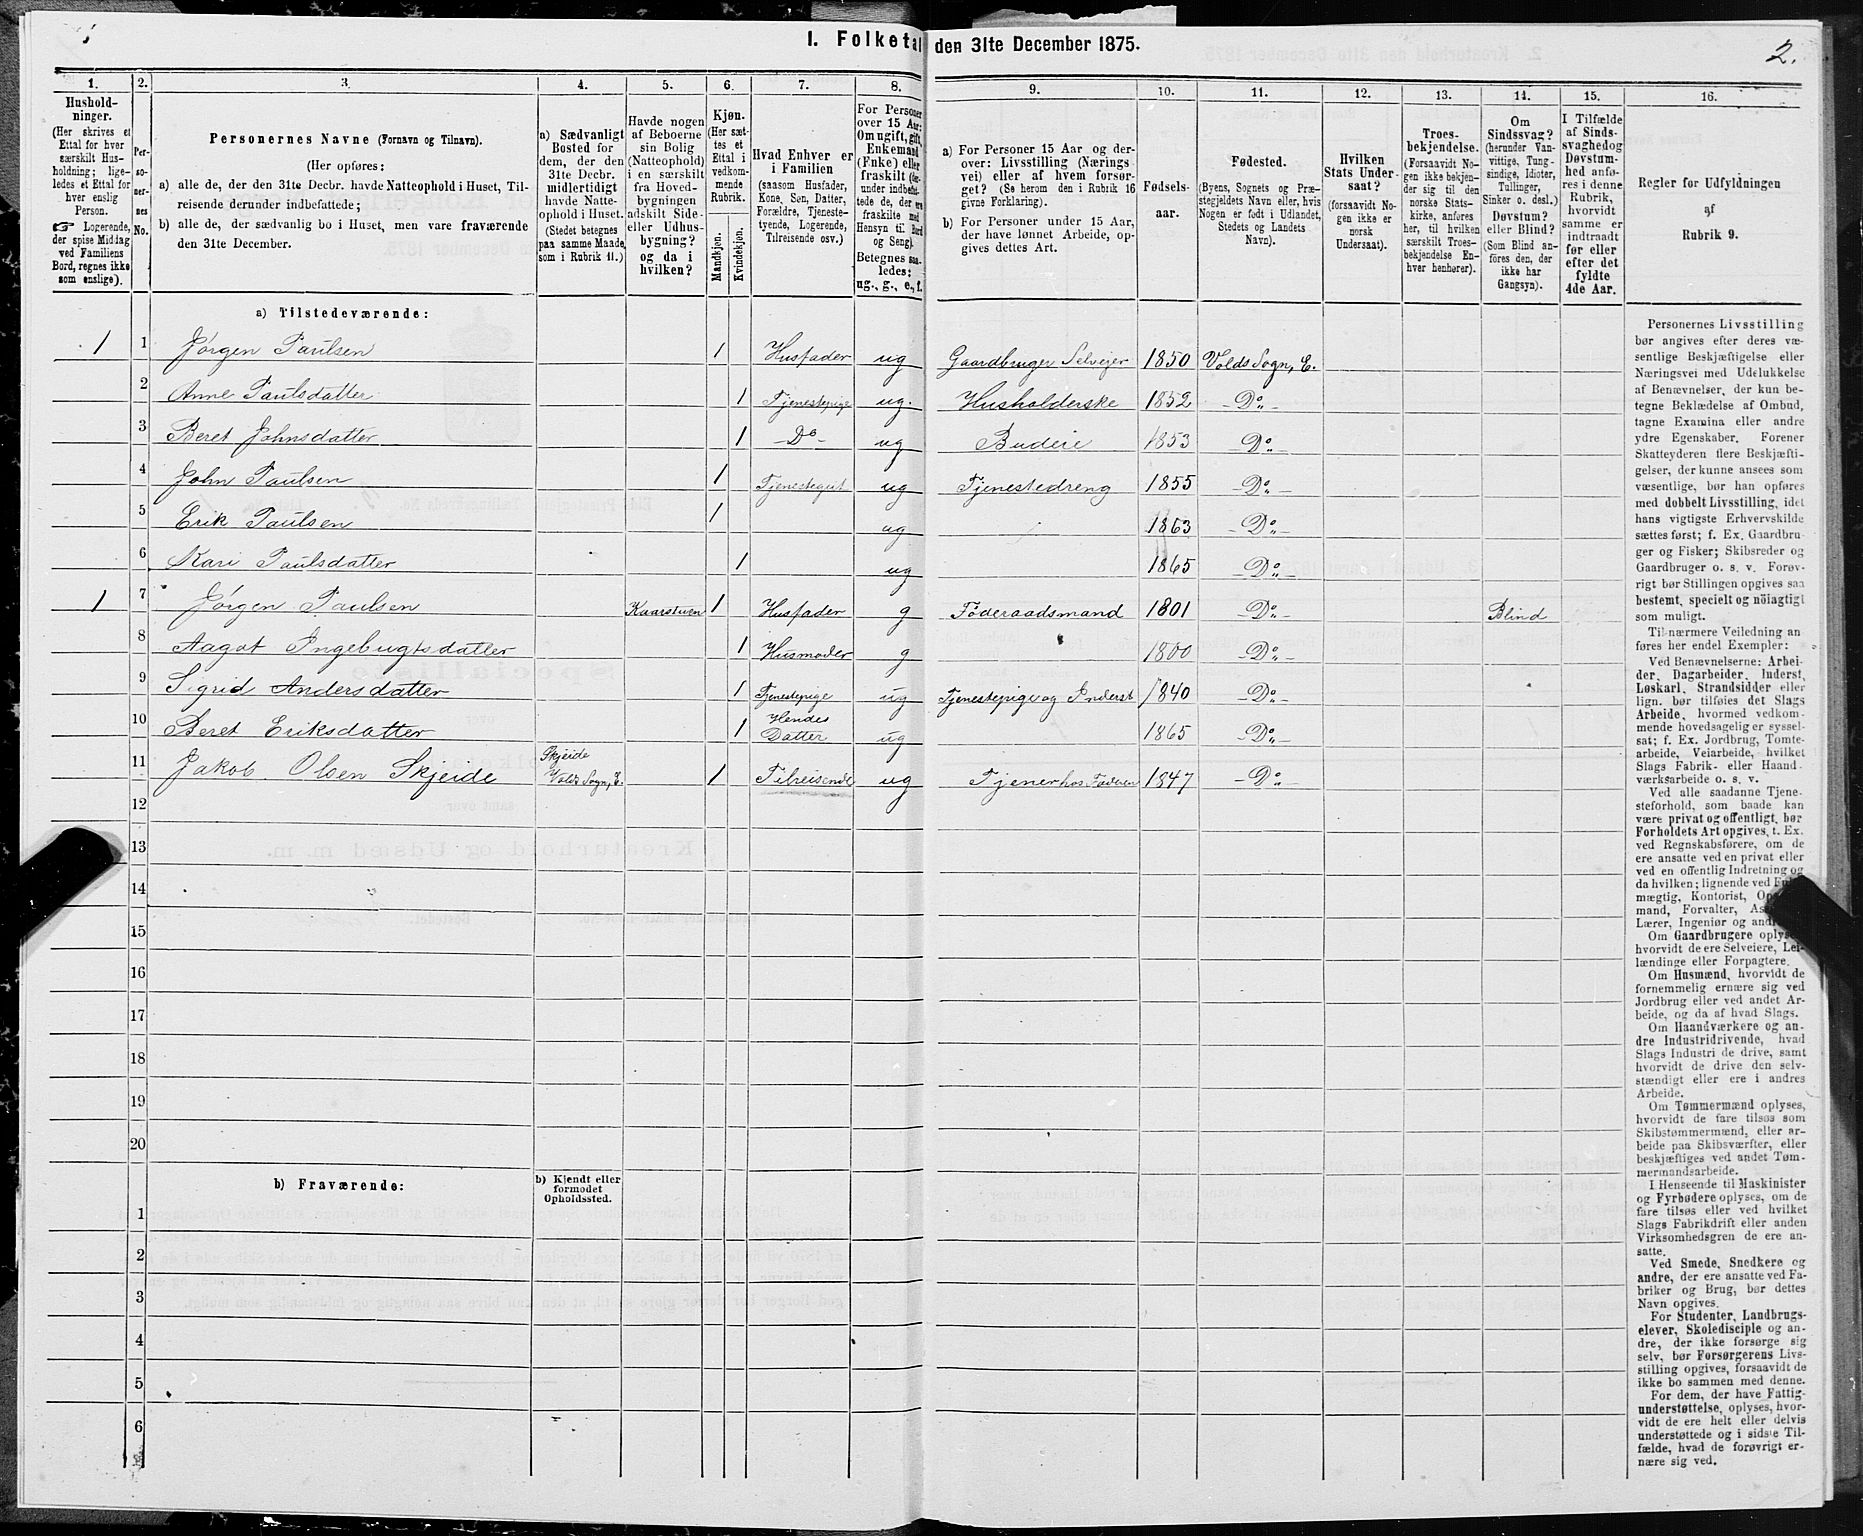 1
I. Folketal den 31te December 1875.
2.
1.
Hushold-
ninger.
(Her skrives et
Ettal for hver
særskilt Hus-
holdning; lige-
ledes et Ettal for
hver enslig
Person.
☛ Logerende,
der spise Middag
ved Familiens
Bord, regnes ikke
som enslige).
2.
Per-
so-
ner-
nes
No.
3.
Personernes Navne (Fornavn og Tilnavn).
(Her opføres:
a) alle de, der den 31te Decbr. havde Natteophold i Huset, Til-
reisende derunder indbefattede;
b) alle de, der sædvanlig bo i Huset, men vare fraværende
den 31te December.
4.
a) Sædvanligt
Bosted for
dem, der den
31te Decbr.
midlertidigt
havde Natte-
ophold i Huset.
(Stedet betegnes
paa samme Maade,
som i Rubrik 11.)
5.
Havde nogen
af Beboerne
sin Bolig
(Natteophold)
i en særskilt
fra Hoved-
bygningen
adskilt Side-
eller Udhus-
bygning?
og da i
hvilken?
6.
Kjøn.
(Her sæt-
tes et
Ettal i
vedkom-
mende
Rubrik.
Mandkjøn.
Kvindekjøn.
7.
Hvad Enhver er
i Familien
(saasom Husfader,
Kone, Søn, Datter,
Forældre, Tjeneste-
tyende, Logerende,
Tilreisende osv.)
8.
For Personer
over 15 Aar:
Om ugift, gift,
Enkemand
(Enke) eller
fraskilt (der-
under indbefat-
tede de, der ere
fraskilte med
Hensyn til Bord
og Seng).
Betegnes saa-
ledes:
ug., g., e., f.
9.
a) For Personer 15 Aar og der-
over: Livsstilling (Nærings-
vei) eller af hvem forsør-
get? (Se herom den i Rubrik 16
givne Forklaring).
b) For Personer under 15 Aar,
der have lønnet Arbeide, op-
gives dettes Art.
10.
Fødsels-
aar.
11.
Fødested.
(Byens, Sognets og Præ-
stegjeldets Navn eller, hvis
Nogen er født i Udlandet,
Stedets og Landets
Navn).
12.
Hvilken
Stats Under-
saat?
(forsaavidt No-
gen ikke er
norsk
Undersaat).
13.
Troes-
bekjendelse.
(Forsaavidt No-
gen ikke bekjen-
der sig til den
norske Stats-
kirke, anføres
her, til hvilken
særskilt Troes-
bekjendelse En-
hver henhører).
14.
Om
Sindssvag?
(herunder Van-
vittige, Tung-
sindige, Idioter,
Tullinger,
Sinker o. desl.)
Døvstum?
eller Blind?
(Som Blind an-
føres den, der
ikke har
Gangsyn).
15.
I Tilfælde
af Sinds-
svaghed og
Døvstum-
hed anfø-
res i denne
Rubrik,
hvorvidt
samme er
indtraadt
før eller
efter det
fyldte
4de Aar.
16.
Regler for Udfyldningen
af
Rubrik 9.
a) Tilstedeværende:
1 1 Jørgen Paulsen 1 Husfader ug Gaardbruger Selveier 1850 Volds Sogn, E.
2 Anne Paulsdatter 1 Tjenestepige ug. Husholderske 1852 Do
3 Beret Johnsdatter 1 Do ug Budeie 1853 Do
4 John Paulsen 1 Tjenestegut ug Tjenestedreng 1855 Do
5 Erik Paulsen 1 ug 1863 Do
6 Kari Paulsdatter 1 ug 1865 Do
1 7 Jørgen Paulsen Kaarstuen 1 Husfader g Føderaadsmand 1801 Do Blind
8 Aagot Ingebrigtsdatter 1 Husmoder g 1800 Do
9 Sigrid Andersdatter 1 Tjenestepige ug Tjenestepige og Inderst 1840 Do
10 Beret Eriksdatter 1 Hendes Datter ug 1865 Do
11 Jakob Olsen Skjeide Skjeide Volds Sogn, E. 1 Tilreisende ug Tjener hos Faderen 1847 Do
12
13
14
15
16
17
18
19
20
b) Fraværende:
b) Kjendt eller
formodet
Opholdssted.
1
2
3
4
5
6
Personernes Livsstilling
bør angives efter deres væ-
sentlige Beskjæftigelse eller
Næringsvei med Udelukkelse
af Benævnelser, der kun be-
tegne Beklædelse af Ombud,
tagne Examina eller andre
ydre Egenskaber. Forener
Skatteyderen flere Beskjæfti-
gelser, der kunne ansees som
væsentlige, bør han opføres
med dobbelt Livsstilling, idet
hans vigtigste Erhvervskilde
sættes først; f. Ex. Gaardbru-
ger og Fisker; Skibsreder og
Gaardbruger o. s. v. Forøv-
rigt bør Stillingen opgives saa
bestemt, specielt og nöiagtigt
som muligt.
Til nærmere Veiledning an
føres her endel Exempler:
Ved Benævnelserne: Arbei-
der, Dagarbeider, Inderst,
Løskarl, Strandsidder eller
lign. bør tilføies det Slags
Arbeide, hvormed vedkom-
mende hovedsagelig er syssel-
sat; f. Ex. Jordbrug, Tomte-
arbeide, Veiarbeide, hvilket
Slags Fabrik- eller Haand-
værksarbeide o. s. v.
Ved alle saadanne Tjene-
steforhold, som baade kan
være privat og offentligt, bør
Forholdets Art opgives, t. Ex.
ved Regnskabsførere, om de
ere ansatte ved en privat eller
ved en offentlig Indretning og
da hvilken; lignende ved
mægtig, Kontorist,
mand, Forvalter,
Lærer, Ingeniør og
Om Gaardbrugere oplyses,
hvorvidt de ere Selveiere, Lei-
lændinge eller Forpagtere.
Om Husmænd, hvorvidt de
fornemmelig ernære sig ved
Jordbrug eller ved andet Ar-
beide, og da af hvad Slags.
Om Haandværkere og an-
dre Industridrivende, hvad
Slags Industri de drive, samt
hvorvidt de drive den selv-
stændigt eller ere i andres
Arbeide.
Om Tømmermænd oplyses,
hvorvidt de fare tilsøs som
Skibstømmermænd, eller ar-
beide paa Skibsværfter, eller
beskjæftiges ved andet Tøm-
mermandsarbeide.
I Henseende til Maskinister
og Fyrbødere oplyses, om de
fare tilsøs eller ved hvilket
Slags Fabrikdrift eller anden
Virksomhedsgren de ere an-
satte.
Ved Smede, Snedkere og
andre, der ere ansatte ved Fa-
briker og Brug, bør dettes
Navn opgives.
For Studenter, Landbrugs-
elever, Skoledisciple og an-
dre, der ikke forsørge sig
selv, bør Forsørgerens Livs-
stilling opgives, forsaavidt de
ikke bo sammen med denne.
For dem, der have Fattig-
understøttelse, oplyses, hvor-
vidt de ere helt eller delvis
understøttede og i sidste Til-
fælde, hvad de forøvrigt er-
nære sig ved.